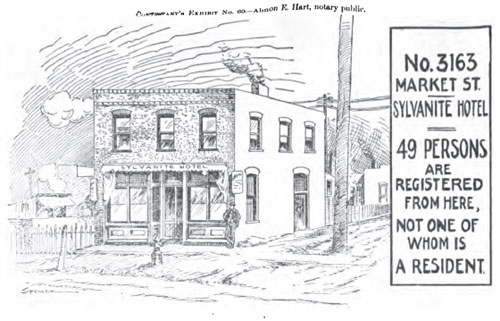 CONTESTANT'S EXHIBIT NO. 60.—Almon E. Hart, notary public.
SYLVANITE HOTEL
No. 3163
MARKET ST.
SYLVANITE HOTEL
49 PERSONS
ARE
REGISTERED
FROM HERE,
NOT ONE OF
WHOM IS
A RESIDENT.